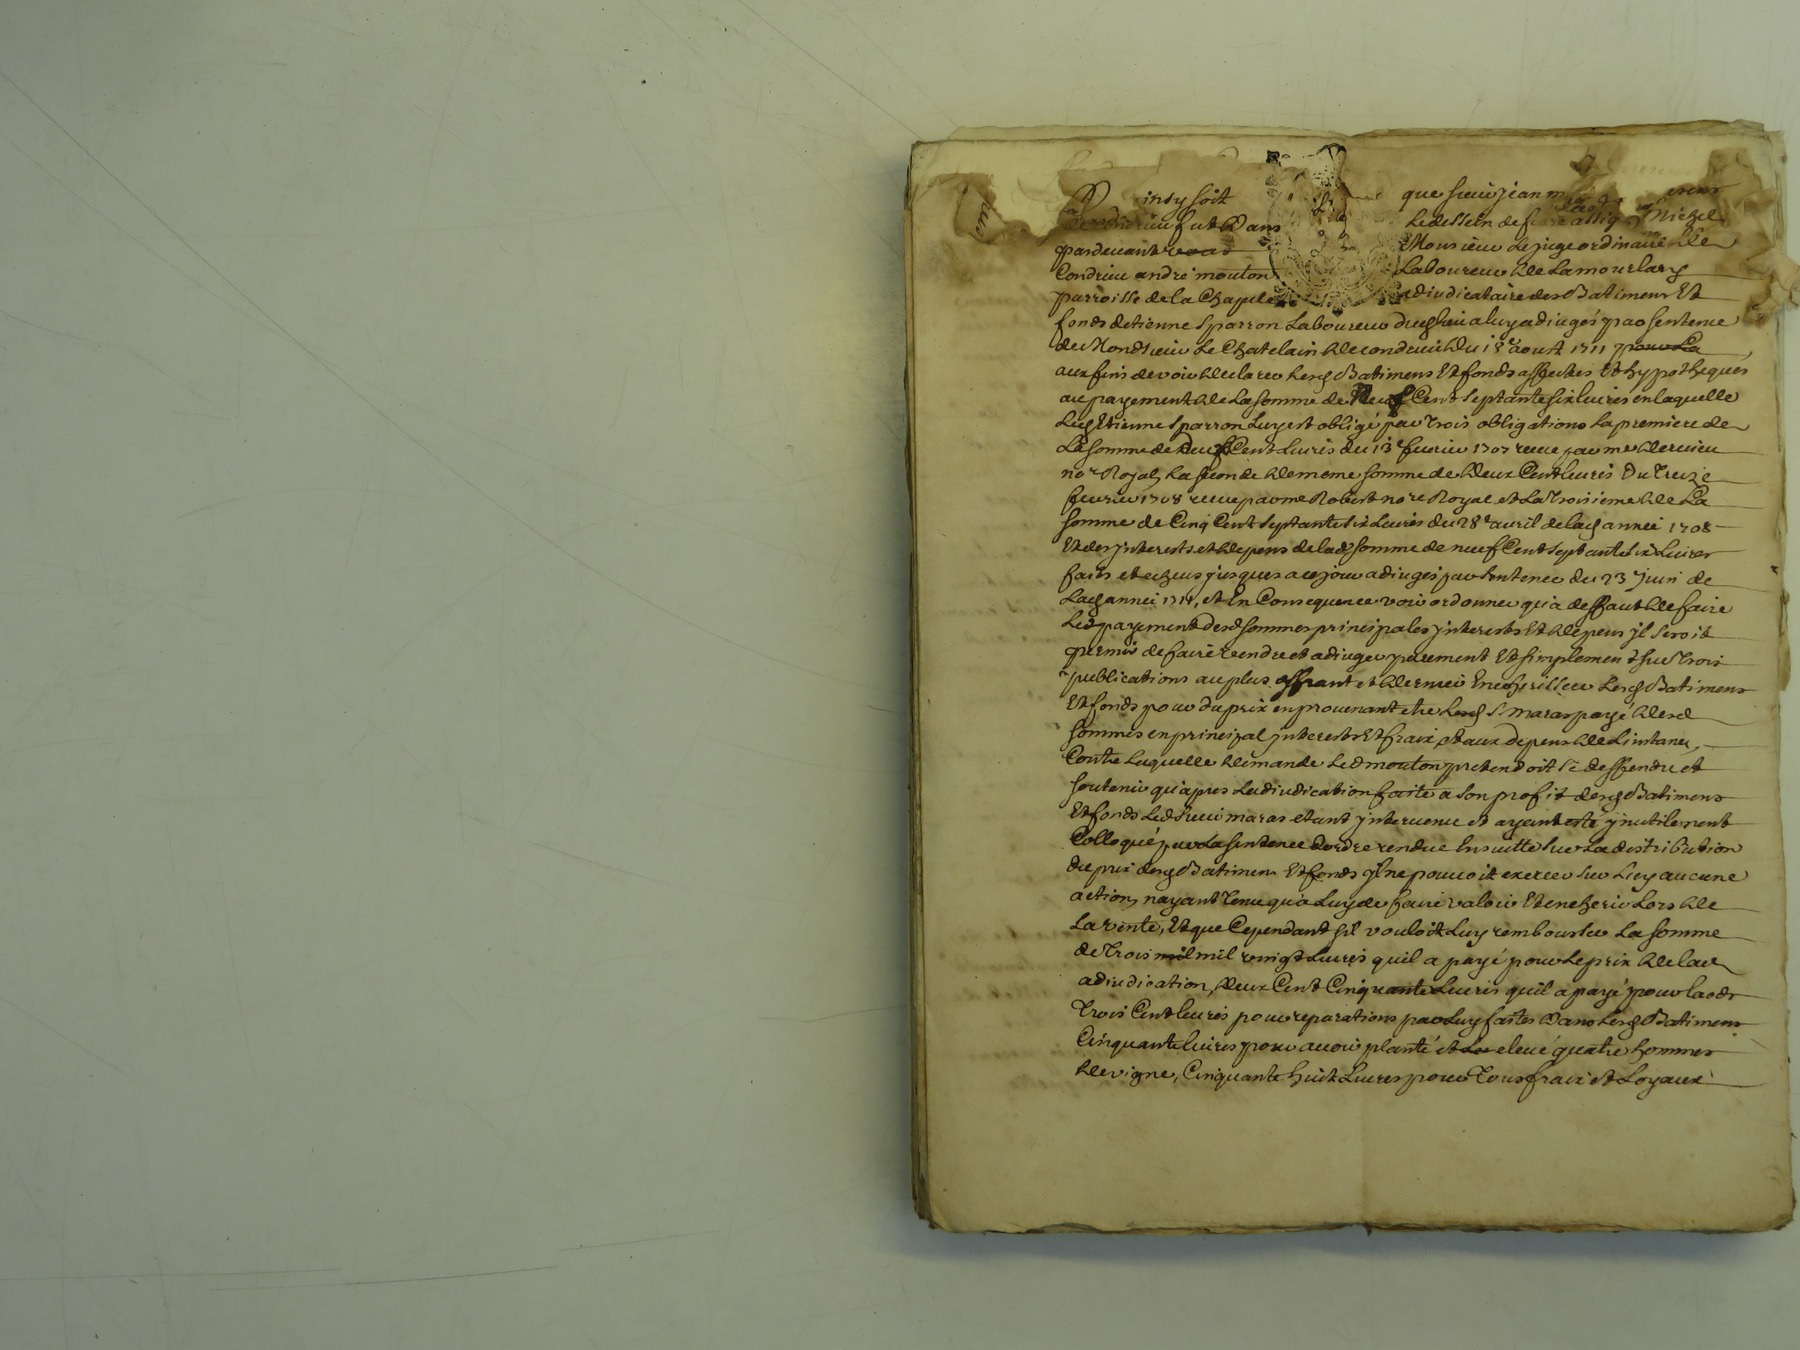 insy soit que sieur jean
a Condrieu fut dans Le dessein de assig
pardevant vous Monsieur Le juge ordinaire de
Condrieu andré mouton Laboureur de Lamourlary
parroisse de la Chapele adiudicataire des Batimens Et
fonds detienne Sparron Laboureur dud lieu a luy adiugés par sentence
de Mondsieur Le Chatelain de condrieu du 18e aoust 1711 pour La
aux fins de voir declarer lesd Batimens Et fonds affectés Et hypotheques
au payement de La somme de Neuf Cent septante six livres en laquelle
Led Etienne Sparron Luy est obligé par trois obligations La premiere de
La somme de deux Cent Livres du 13e fevrier 1707 receue par me dervieu
nore Royal, La seconde de meme somme de deux Cent livres Du treize
fevrier 1708 receue par me Robert nore Royal et La troisieme de La
somme de Cinq Cent septante six Livres du 28e avril de lad année 1708
Et des jnterests et depens de lad somme de neuf Cent septante six Livres
faits et echus jusques a ce jour adiugés par sentence du 23 juin de
Lad année 1711, et En Consequence voir ordonner qu'a deffaut de faire
Led payement desd sommes principales jnterests Et depens jl seroit
permis de faire vendre et adiuger purement Et simplement sur trois
publications au plus offrant et dernier Encherisseur Lesd Batimens
Et fonds pour du prix en provenant etre Led Sr maras payé desd
sommes en principal jnterests Et fraix, et aux depens de Linstance,
Contre Laquelle demande Led mouton pretendoit se deffendre et
soutenir qu'apres Ladiudication faite a son profit desd Batimens
Et fonds Led sieur maras etant jntervenu et ayant esté jnutilement
Colloqué par La sentence dordre rendue Ensuitte sur La distribution
du prix desd Batimens Et fonds jl ne pouvoit exercer sur Luy aucune
action, nayant tenu qu'a Luy de faire valoir Et encherir Lors de
La vente, Et que Cependant sil vouloit Luy rembourser La somme
de trois mil mil vingt Livres quil a payé pour Le prix de lad
adiudication, deux Cent Cinquante Livres quil a payé pour laods
trois Cent livres pour reparations par Luy faites Dans Lesd Batimens
Cinquante livres pour avoir planté et Les elevé quatre hommes
de vigne, Cinquante huit Livres pour tous fraix et Loyaux